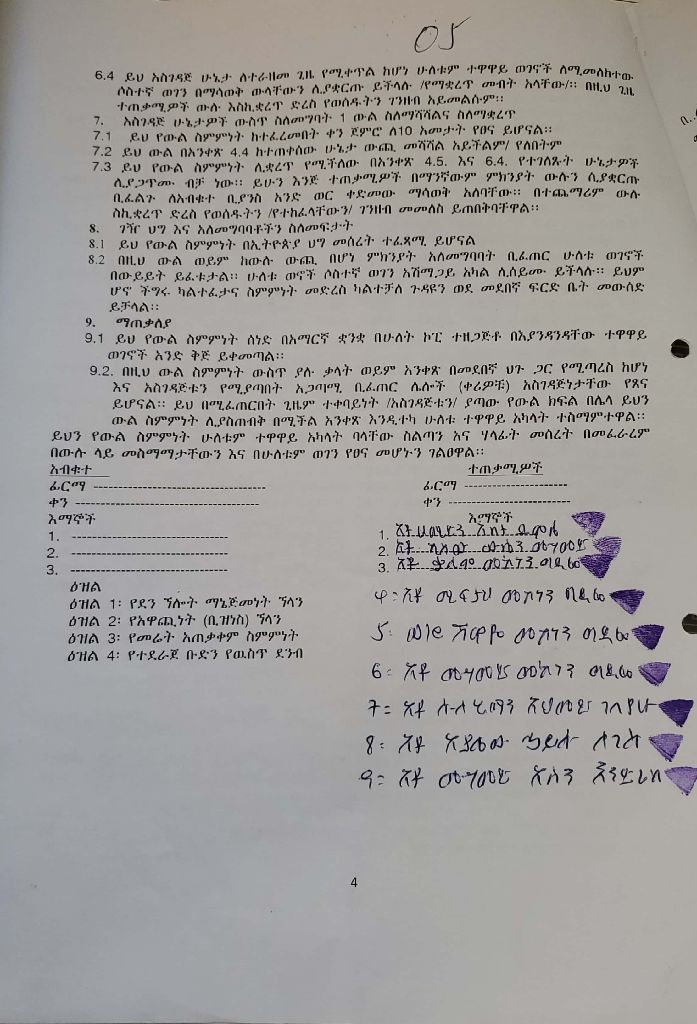 05
6.4 ይህ አስገዳጅ ሁኔታ ለተራዘመ ጊዜ የሚቀጥል ከሆነ ሁለቱም ተዋዋይ ወገኖች ለሚመለከተው
ሶስተኛ ወገን በማሳወቅ ውላቸውን ሊያቋርጡ ይችላሉ /የማቋረጥ መብት አላቸው/፡፡ በዚህ ጊዜ
ተጠቃሚዎች ውሉ እስኪቋረጥ ድረስ የወሰዱትን ገንዘብ አይመልሱም፡፡
7. አስገዳጅ ሁኔታዎች ውስጥ ስለመግባት 1 ውል ስለማሻሻልና ስለማቋረጥ
7.1 ይህ የውል ስምምነት ከተፈረመበት ቀን ጀምሮ ለ10 አመታት የፀና ይሆናል፡፡
7.2 ይህ ውል በአንቀጽ 4.4 ከተጠቀሰው ሁኔታ ውጪ መሻሻል አይችልም/ የለበትም
7.3 ይህ የውል ስምምነት ሊቋረጥ የሚችለው በአንቀጽ 4.5. እና 6.4. የተገለጹት ሁኔታዎች
ሲያጋጥሙ ብቻ ነው፡፡ ይሁን እንጅ ተጠቃሚዎች በማንኛውም ምክንያት ውሉን ሲያቋርጡ
ቢፈልጉ ለአብቁተ ቢያንስ አንድ ወር ቀድመው ማሳወቅ አለባቸው፡፡ በተጨማሪም ውሉ
ስኪቋረጥ ድረስ የወሰዱትን /የተከፈላቸውን/ ገንዘብ መመለስ ይጠበቅባቸዋል፡፡
8. ገዥ ህግ እና አለመግባባቶችን ስለመፍታት
8.1 ይህ የውል ስምምነት በኢትዮጵያ ህግ መሰረት ተፈጻሚ ይሆናል
8.2 በዚህ ውል ወይም ከውሉ ውጪ በሆነ ምክንያት አለመግባባት ቢፈጠር ሁለቱ ወገኖች
በውይይት ይፈቱታል፡፡ ሁለቱ ወኖች ሶስተኛ ወገን አሸማጋይ አካል ሊሰይሙ ይችላሉ፡፡ ይህም
ሆኖ ችግሩ ካልተፈታና ስምምነት መድረስ ካልተቻለ ጉዳዩን ወደ መደበኛ ፍርድ ቤት መውሰድ
ይቻላል፡፡
9. ማጠቃለያ
9.1 ይህ የውል ስምምነት ሰነድ በአማርኛ ቋንቋ በሁለት ኮፒ ተዘጋጅቶ በእያንዳንዳቸው ተዋዋይ
ወገኖች አንድ ቅጅ ይቀመጣል፡፡
9.2. በዚህ ውል ስምምነት ውስጥ ያሉ ቃላት ወይም አንቀጽ በመደበኛ ህጉ ጋር የሚጣረስ ከሆነ
እና አስገዳጅቱን የሚያጣበት አጋጣሚ ቢፈጠር ሌሎች (ቀሪዎቹ) አስገዳጅነታቸው የጸና
ይሆናል፡፡ ይህ በሚፈጠርበት ጊዜም ተቀባይነት /አስገዳጅቱን/ ያጣው የውል ክፍል በሌላ ይህን
ውል ስምምነት ሊያስጠብቅ በሚችል አንቀጽ እንዲተካ ሁለቱ ተዋዋይ አካላት ተስማምተዋል፡፡
ይህን የውል ስምምነት ሁለቱም ተዋዋይ አካላት ባላቸው ስልጣን እና ሃላፊት መስረት በመፈራረም
በውሉ ላይ መስማማታቸውን እና በሁለቱም ወገን የፀና መሆኑን ገልፀዋል፡፡
አብቁተ ተጠቃሚዎች
ፊርማ ---------------------------------- ፊርማ --------------------
ቀን ---------------------------------- ቀን ------------------------
እማኞች እማኞች
1. ------------------------------- 1. አቶ
2. ------------------------------- 2. አቶ
3. ------------------------------- 3. አቶ
ዕዝል
ዕዝል 1፡ የደን ኘሎት ማኔጅመነት ኘላን
ዕዝል 2፡ የአዋጪነት (ቢዝነስ) ኘላን
ዕዝል 3፡ የመሬት አጠቃቀም ስምምነት
ዕዝል 4፡ የተደራጀ ቡድን የዉስጥ ደንብ
4፡ አቶ
5፡
6፡ አቶ መሃመድ መስገን
7፡ አቶ ሱሌይማን አህመድ
8፡ አቶ
9፡ አቶ መሃመድ
4